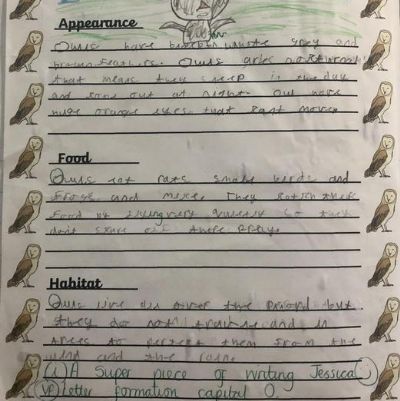 Appearance
Owls have brown white grey and
brown feathers. Owls are nocturnal
that means they sleep in the day
and come out at night. Owl have
huge orange eyes that cant move.
Food
Owls eat rats small birds and
frogs and mice. They catch their
food by flying very quietly so they
dont scare off there prey.
Habitat
Owls live all over the world but
they do not and in
trees to pertect them from the
wind and the rain.
A Super piece of writing Jessica
Letter formation capital O.